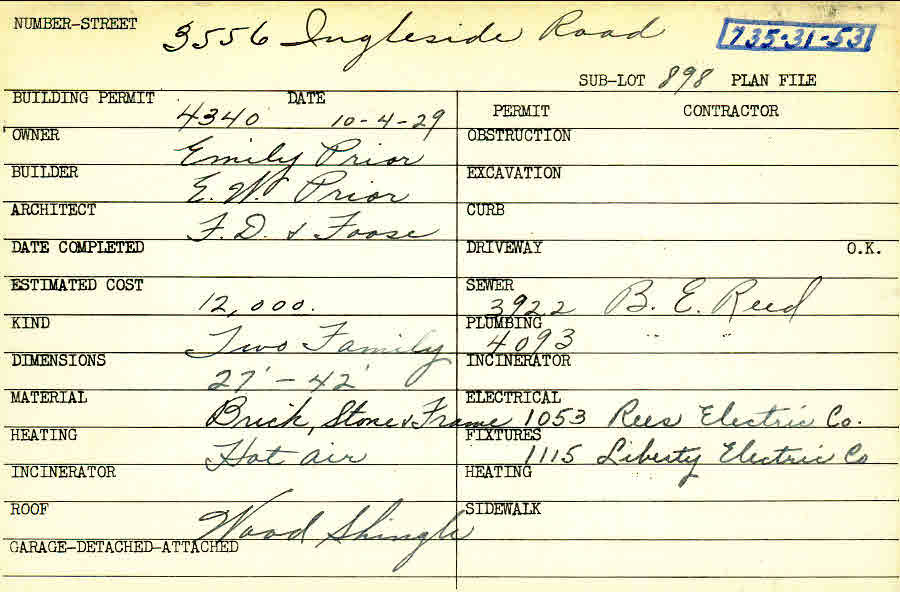 NUMBER-STREET 3556 Ingleside Road 735-31-53
SUB-LOT 898 PLAN FILE
BUILDING PERMIT 4340 DATE 10-4-29
OWNER Emily Prior
BUILDER E. W. Prior
ARCHITECT F. D. & Foose
DATE COMPLETED
ESTIMATED COST 12,000.
KIND Two Family
DIMENSIONS 27' - 42'
MATERIAL Brick, Stone & Frame
HEATING Hot air
INCINERATOR
ROOF Wood Shingle
GARAGE-DETACHED-ATTACHED
PERMIT CONTRACTOR
OBSTRUCTION
EXCAVATION
CURB
DRIVEWAY O.K.
SEWER 3922 B. E. Reed
PLUMBING 4093 " "
INCINERATOR
ELECTRICAL 1053 Rees Electric Co.
FIXTURES 1115 Liberty Electric Co
HEATING
SIDEWALK